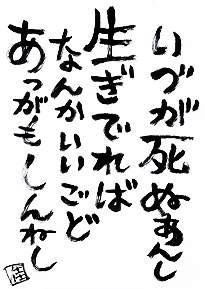 いづが死ぬぁんし
生ぎでれば
なんかいいごど
あっがもしんねし